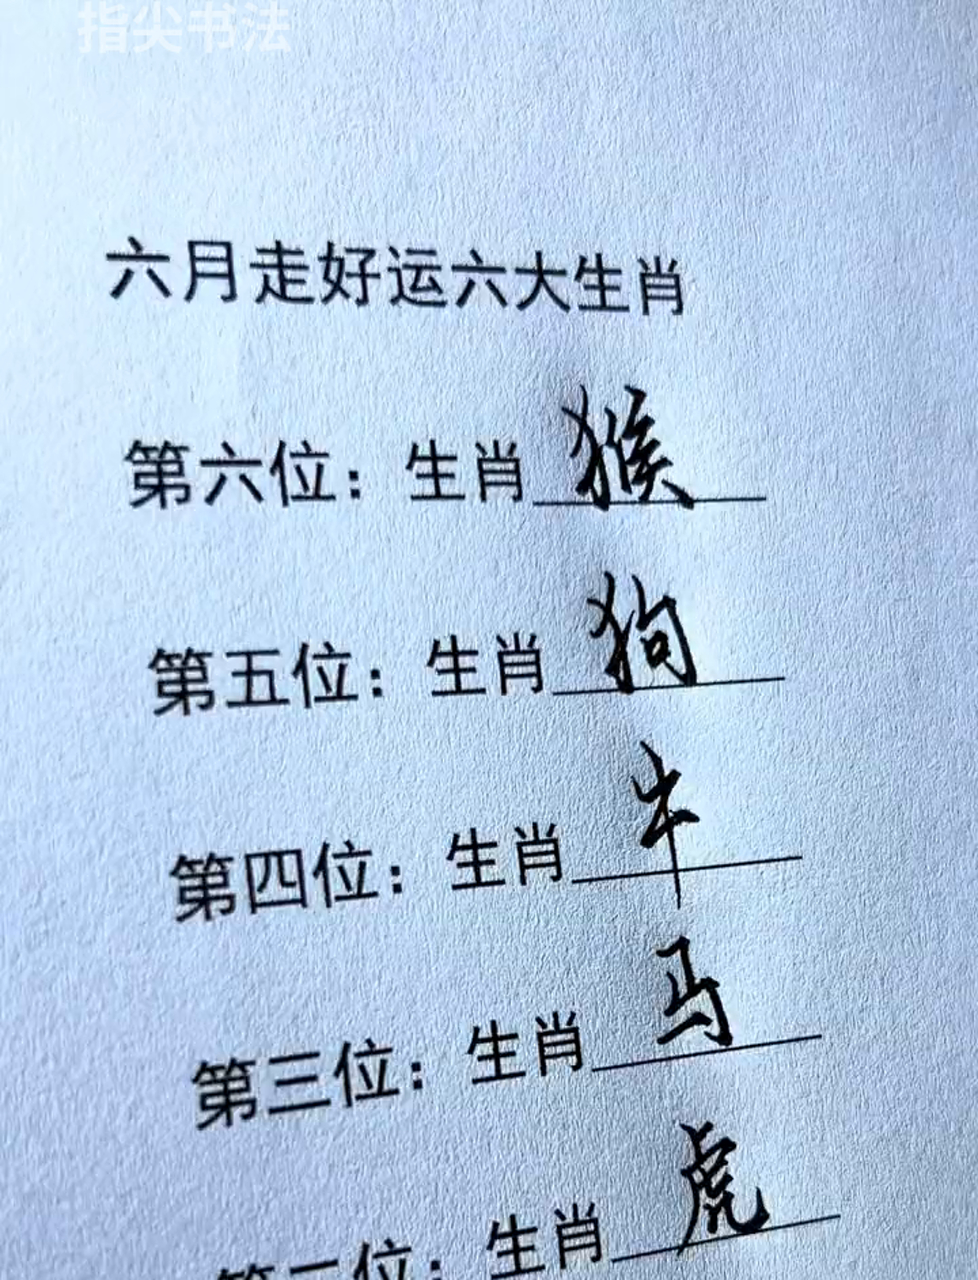 指尖书法
六月走好运六大生肖
第六位：生肖猴
第五位：生肖狗
第四位：生肖牛
第三位：生肖马
第二位：生肖虎